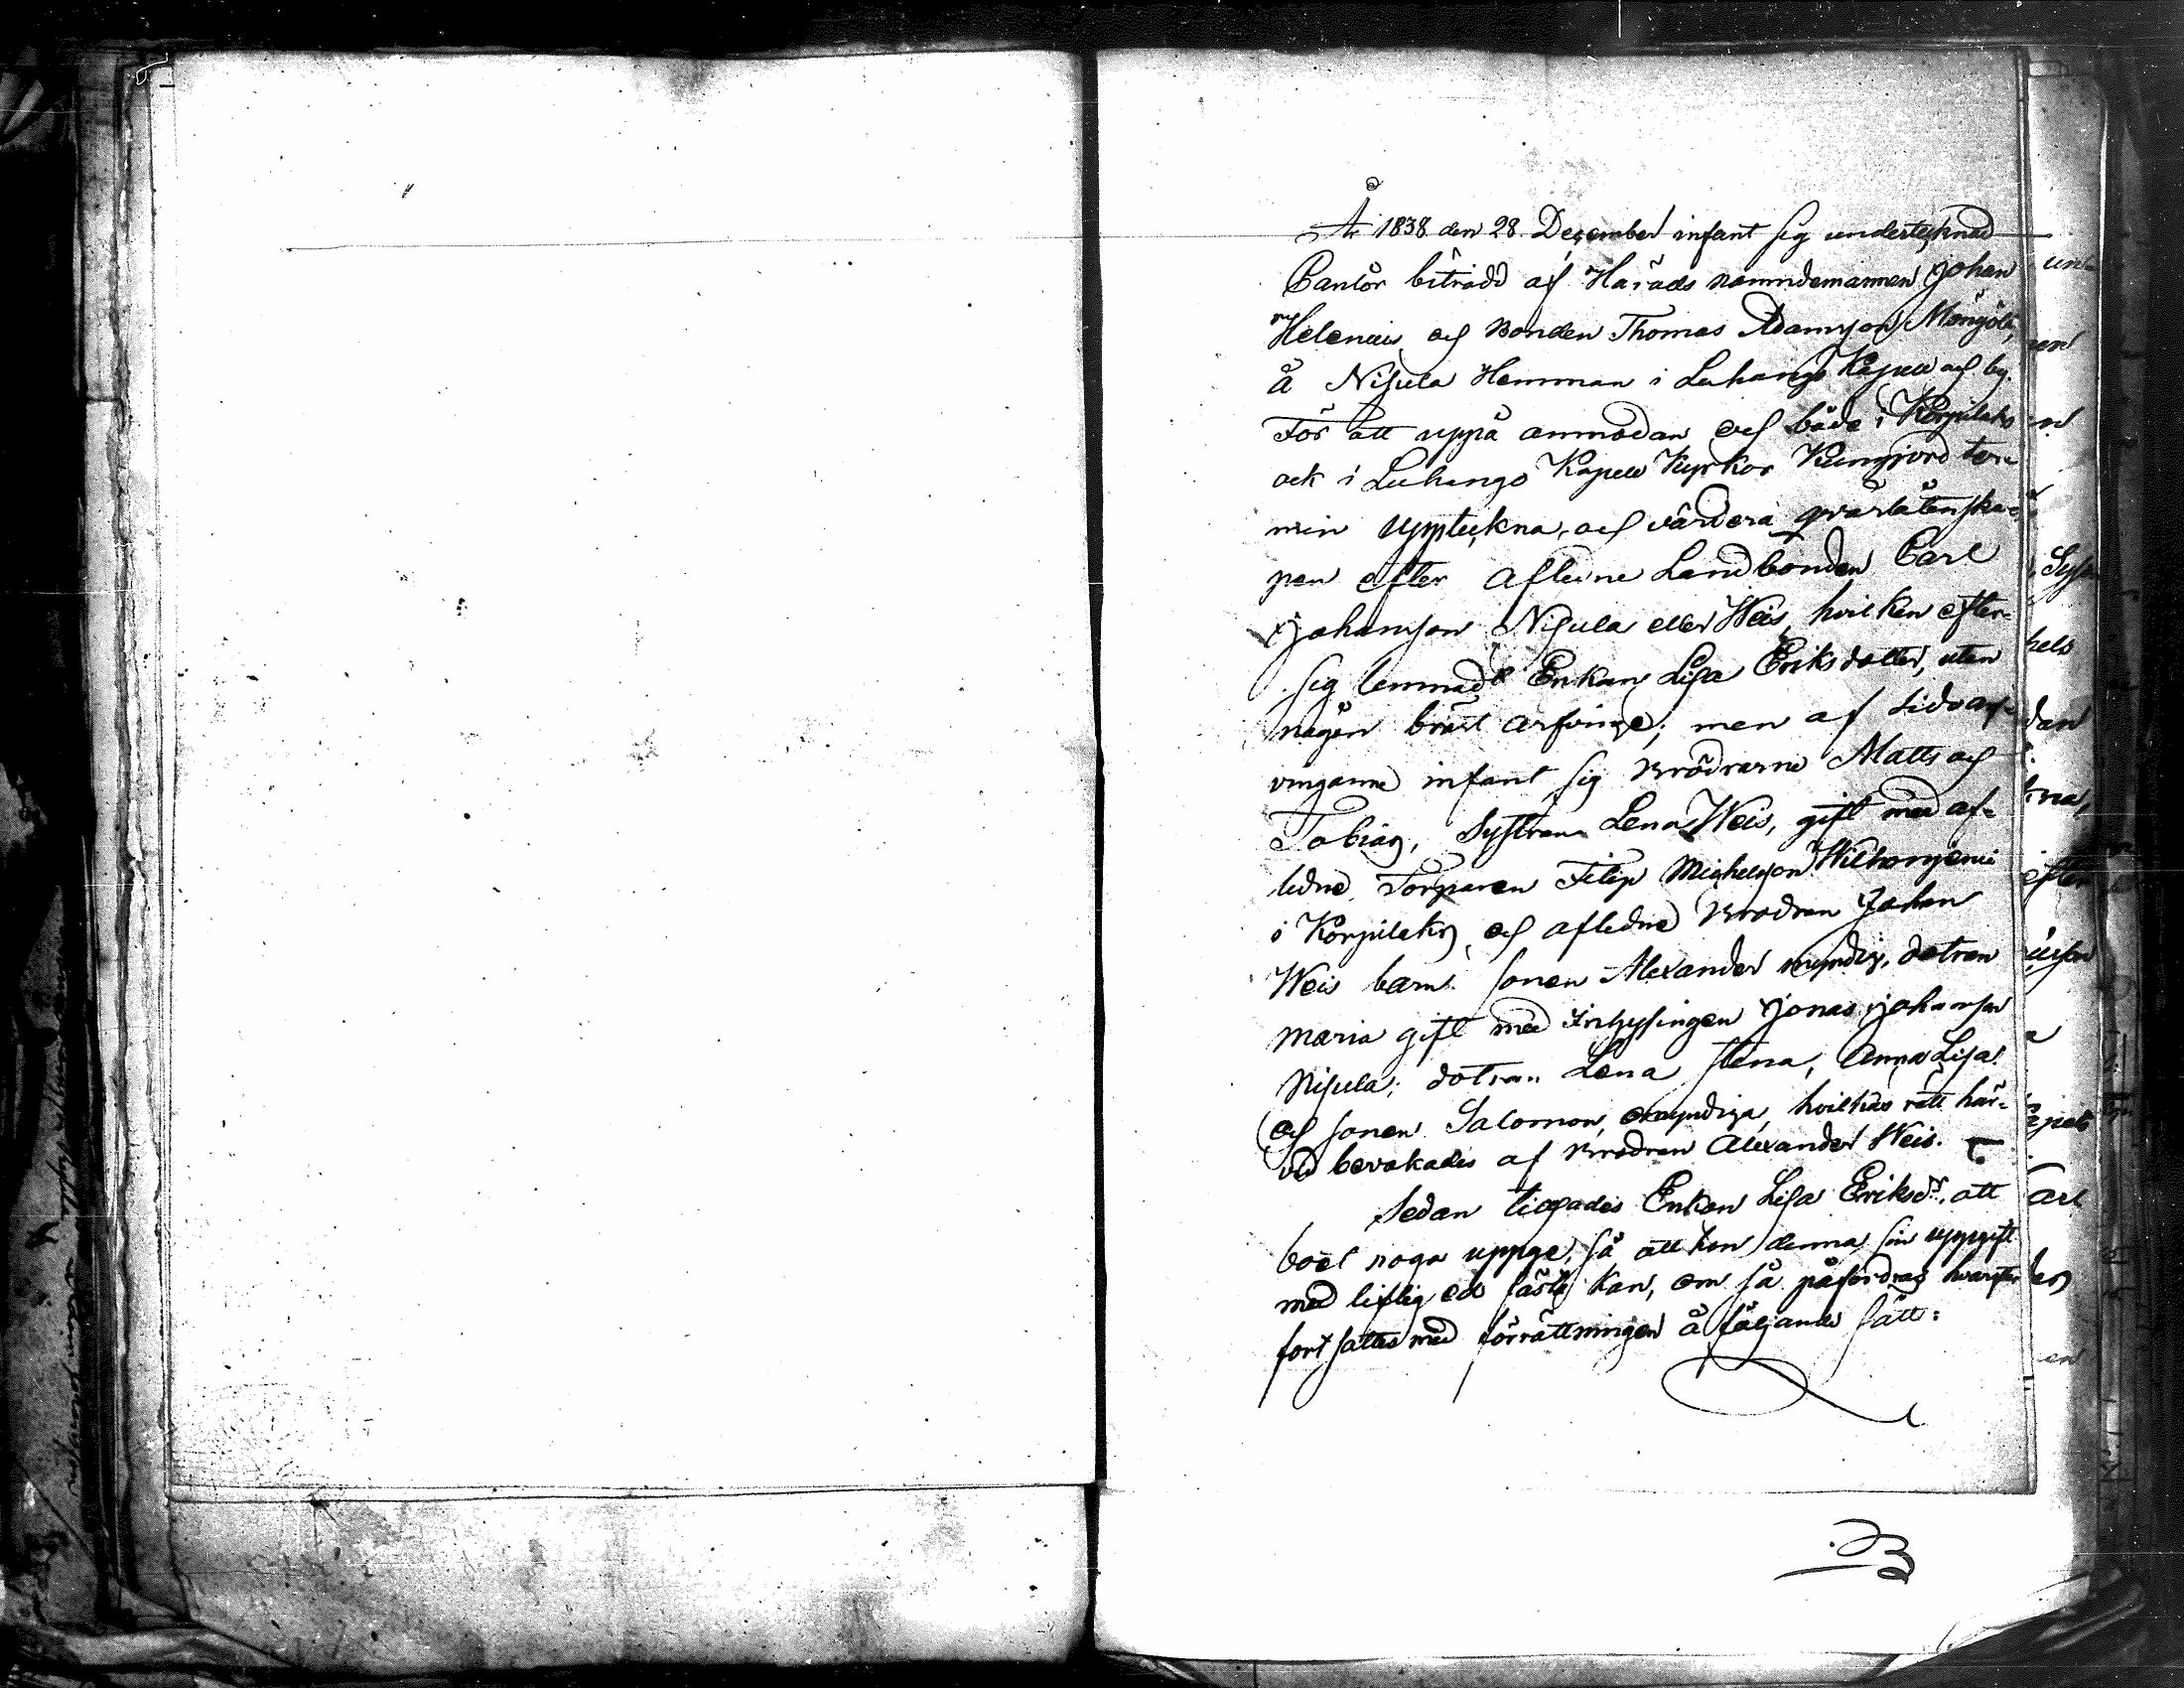 År 1838 den 28 December infant sig undertecknad
Cantor biträdd af Härads nämndemannen Johan
Helenius och Bonden Thomas Adamsson Mängölä,
å Nisula Hemman i Luhango Kapell och by.
För att uppå anmodan och både i Korpilaks
ock i Luhango Kapell Kyrkor Kungjord ter-
min upptekna, och värdera qvarlåtenska-
pen efter aflidne Landbonden Carl
Johansson Nisula eller Weis, hvilken efter-
sig lemnade Enkan Lisa Eriksdotter, utan
någon bröst arfvinge; men af sidoarf-
vingarne infant sig Bröderne Matts och
Tobias, Systran Lena Weis, gift med af-
lidne Torparen Filip Michelsson Wilhonjemi
i Korpilaks, och aflidne Brodren Johan
Weis barn. Sonen Alexander myndig, dotren
Maria gift med Inhysingen Jonas Johansson
Nisula; dotren Lena Stena, Anna Lisa
och sonen Salomon, omyndiga, hvilkas rätt här-
vid bevakades af Brodren Alexander Weis.
Sedan tillsades Enkan Lisa Eriksdr. att
boet noga uppge, så att hon denna sin uppgift
med liflig ed fästa kan, om så påfordras hvarefter
fortsattes med förrättningen å följande sätt: